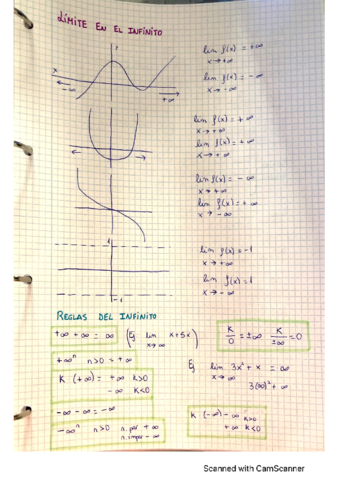 LÍMITE EN EL INFINITO
lim f(x) = +∞
x → +∞
lim f(x) = -∞
x → -∞
x
-∞
+∞
lim f(x) = +∞
x → +∞
lim f(x) = +∞
x → +∞
lim f(x) = -∞
x → +∞
lim f(x) = +∞
x → -∞
1
lim f(x) = -1
x → +∞
lim f(x) = 1
x → -∞
-1
REGLAS DEL INFINITO
+∞ +∞ = ∞
(Ej lim x+5x)
x→∞
K/0 = ±∞ K/±∞ = 0
+∞ⁿ n>0 = +∞
K (+∞) = +∞ K>0
-∞ K<0
Ej lim 3x² + x = ∞
x → ∞
3(∞)² + ∞
-∞ -∞ = -∞
-∞ⁿ n>0 n.par +∞
n.impar -∞
K (-∞) -∞ K>0
+∞ K<0
Scanned with CamScanner